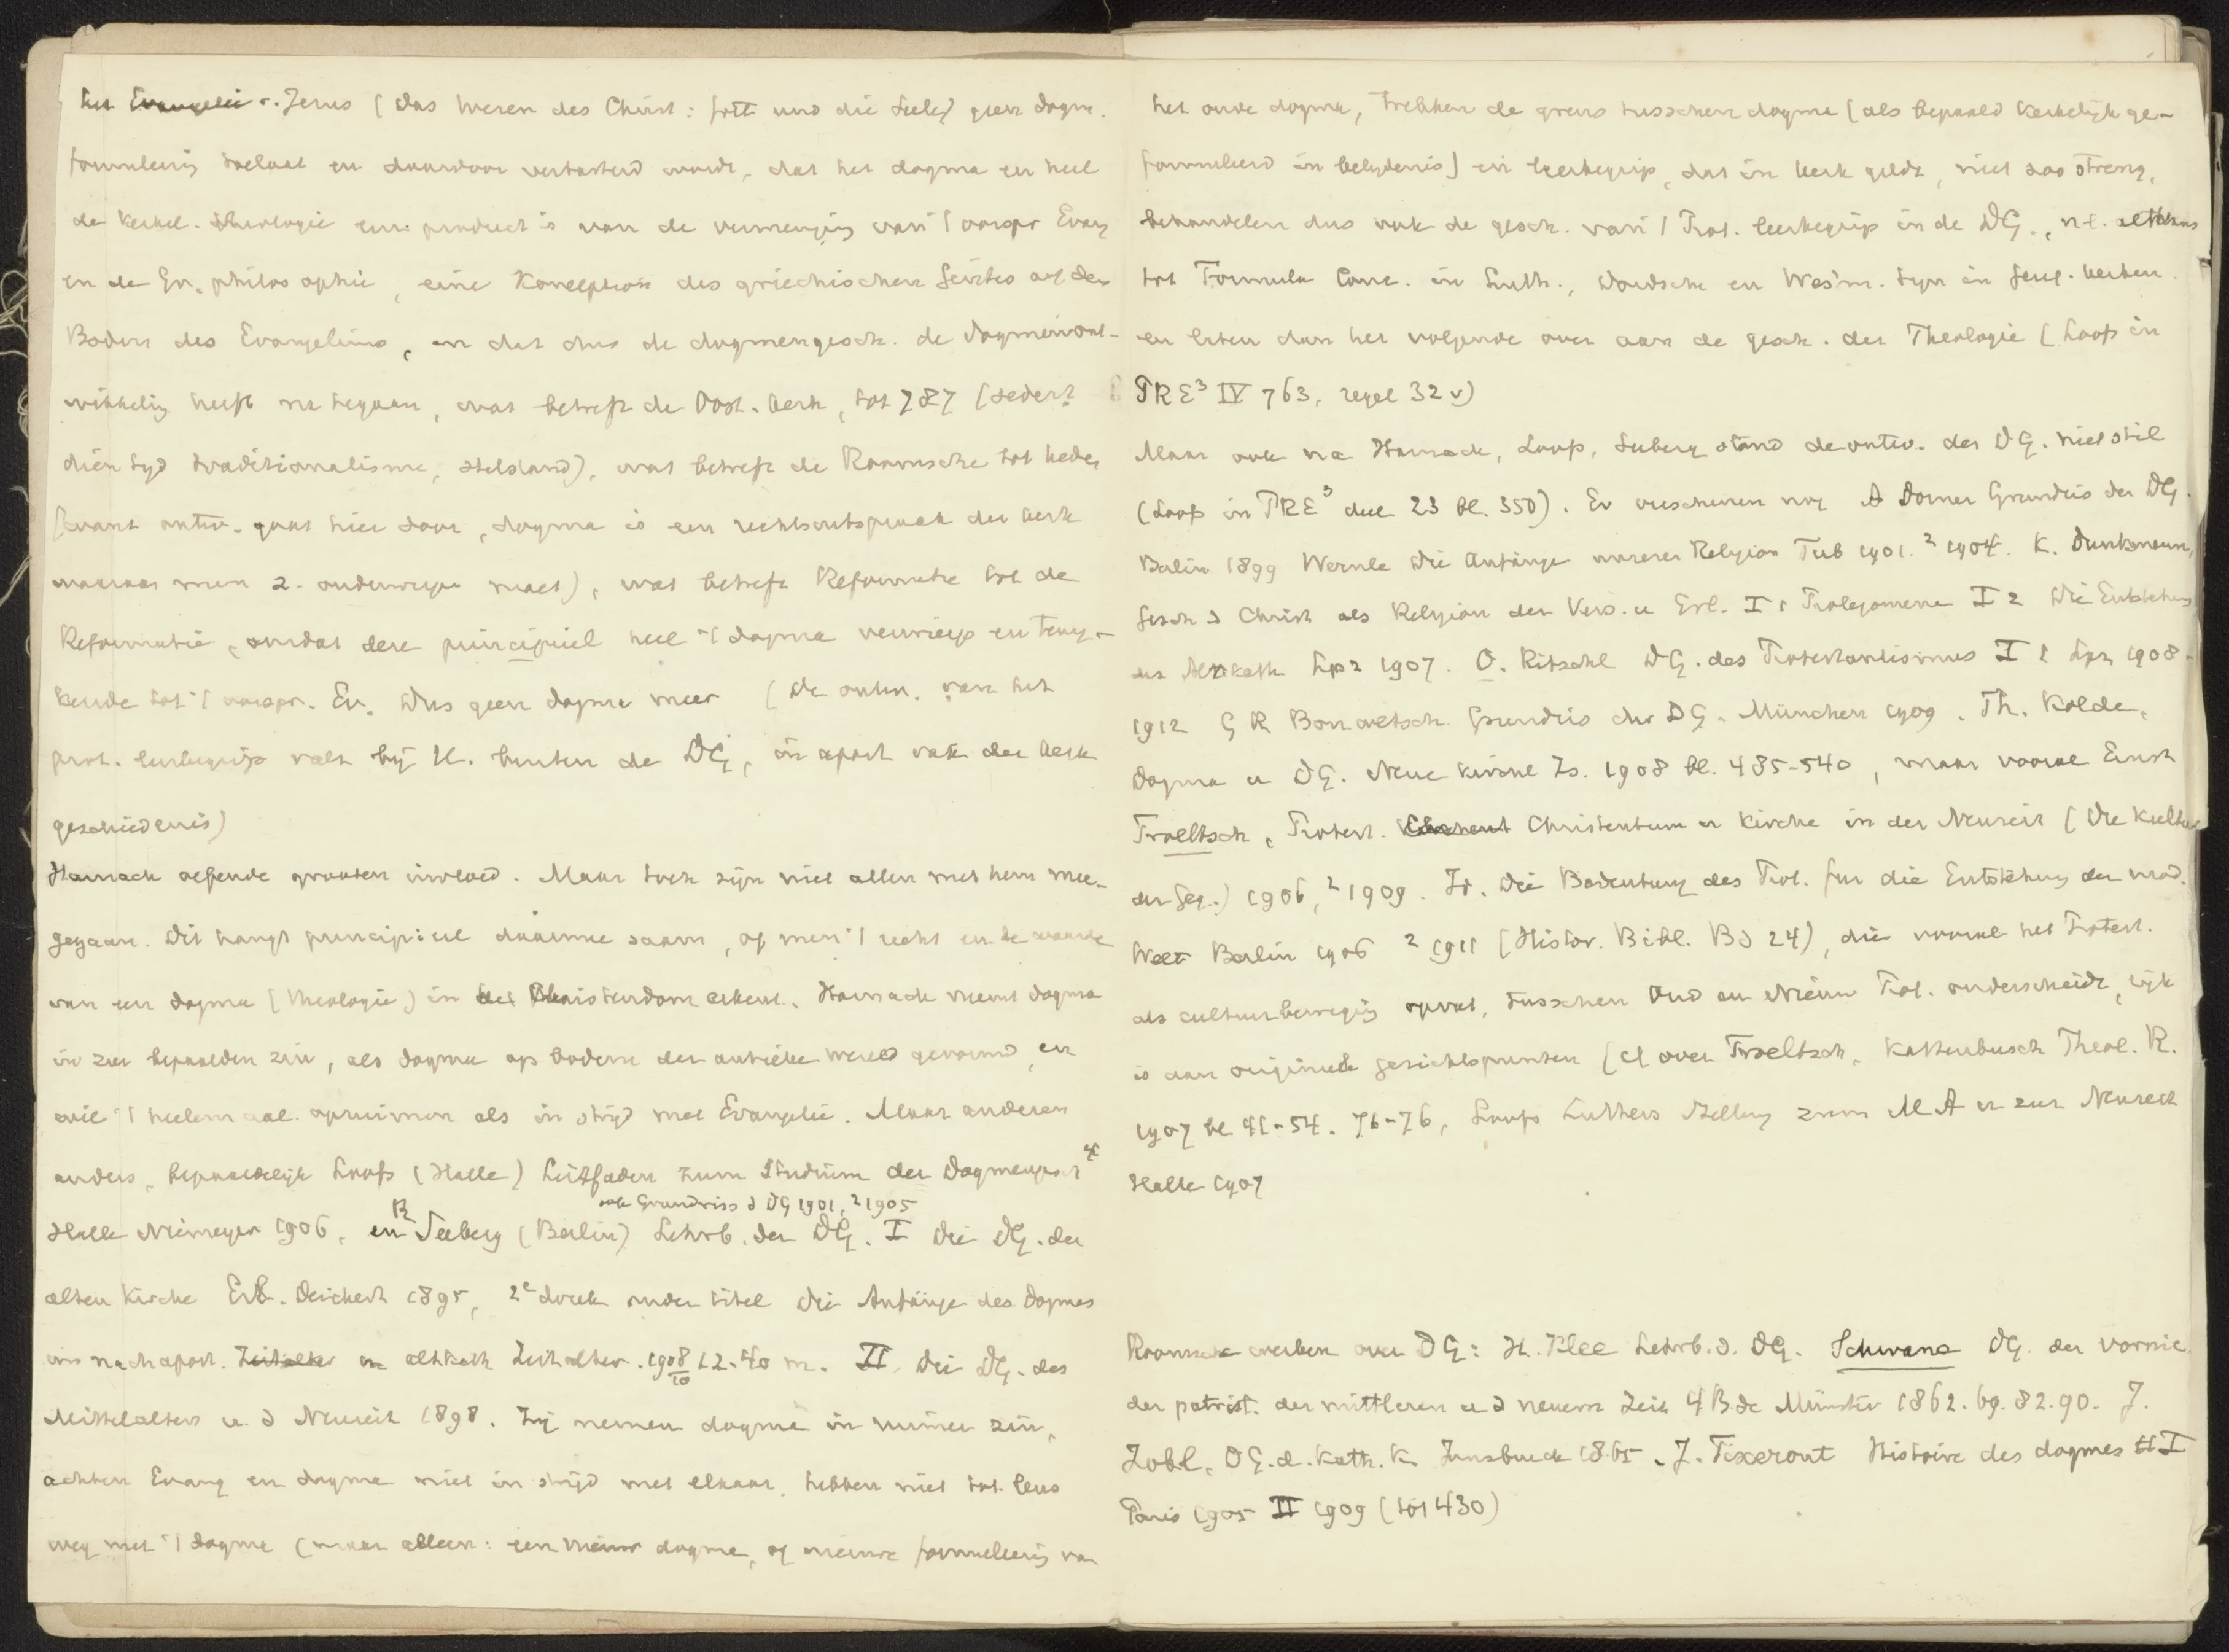 het Evangelie v. Jezus (das Wesen des Christ: Gott und die Seele) geen dogm.
formuleering toelaat en daardoor verbasterd wordt, dat het dogma en heel
de kerkel. theologie een product is van de vermenging van 't oorspr Evang
en de Gr. philosophie, eine Konception des griechischen Geistes auf dem
Boden des Evangeliums, en dat dus de dogmengesch. de dogmenont-
wikkeling heeft na te gaan, wat betreft de Oost. kerk, tot 787 (seder?
dien tyd traditionalisme, stilstand), wat betreft de Roomsche tot heden
(want ontw. gaat hier door, dogma is een rechtsuitspraak der kerk
waaraan men z. onderwerpen moet), wat betreft Reformatie tot de
Reformatie, omdat deze principieel heel 't dogma verwierp en terug-
keerde tot 't oorspr. Ev. Dus geen dogma meer (De ontw. van het
prot. leerbegrip valt bij H. buiten de DG, in apart vak der kerk
geschiedenis)
Harnack oefende grooten invloed. Maar toch zijn niet allen met hem mee-
gegaan. Dit hangt principieel daarmee saam, of men 't recht en de waarde
van een dogma (theologie) in het Christendom erkent. Harnack neemt dogma
in zeer bepaalden zin, als dogma op bodem der antieke wereld gevormd, en
wil 't heelemaal opruimen als in strijd met Evangelie. Maar anderen
anders, bepaaldelijk Loofs (Halle) Leitfaden zum Studium der Dogmengesch 4e
ook Grundriss d DG 1901, 2 1905
Halle Niemeyer 1906, en R Seeberg (Berlin) Lehrb. der DG. I Die DG. der
alten Kirche Erl. Deichert 1895, 2e druk onder titel Die Anfänge des Dogmas
im nachapost. Zeitalter en altkath Zeitalter. 1908/10 12.40 m. II Die DG. des
Mittelalters u. d Neuzeit 1898. Zij nemen dogma in ruimer zin,
achten Evang en dogma niet in strijd met elkaar, hebben niet tot leus
weg met 't dogma (maar alleen: een nieuw dogma, of nieuwe formuleering van
het oude dogma, trekken de grens tusschen dogma (als bepaald kerkelijk ge-
formuleerd in belydenis) en leerbegrip, dat in kerk geldt, niet zoo streng,
behandelen dus ook de gesch. van 't Prot. leerbegrip in de DG., nl. althans
tot Formula Conc. in Luth., Dordsche en Westm. Syn in Geref. kerken.
en laten dan het volgende over aan de gesch. der Theologie (Loofs in
PRE3 IV 763, regel 32 v)
Maar ook na Harnack, Loofs, Seeberg stond de ontw. der DG. niet stil
(Loofs in PRE3 deel 23 bl. 350). Er verschenen nog A Dorner Grundris der DG.
Berlin 1899 Wernle Die Anfänge unserer Religion Tüb 1901. 2 1904. K. Dunkmann,
Gesch d Christ als Religion der Vers. u Erl. I 1 Prolegomena I 2 Die Entstehung
der Altkath Lpz 1907. O. Ritschl DG. des Protestantismus I 1 Lpz 1908-
1912 G R Bonwetsch Grundris der DG. München 1909. Th. Kolde,
Dogma u DG. Neue Kirchl Zs. 1908 bl. 485-540, maar vooral Ernst
Troeltsch, Protest. Christentum u Kirche in der Neuzeit (Die Kultur
der Geg.) 1906, 2 1909. Id. Die Bedeutung des Prot. für die Entstehung der mod.
Welt Berlin 1906 2 1911 (Histor. Bibl. Bd 24), die vooral het Protest.
als cultuurbeweging opvat, tusschen Oud en Nieuw Prot. onderscheidt, rijk
is aan origineele gezichtspunten (cf over Troeltsch, Kattenbusch Theol. R.
1907 bl 41-54. 71-76, Loofs Luthers Stellung zum M A u zur Neuzeit
Halle 1907
Roomsche werken over DG: H. Klee Lehrb. d. DG. Schwane DG. der vornic.
der patrist. der mittleren u d neuern Zeit 4 Bde Münster 1862. 69. 82. 90. J.
Zobl, DG. d. Kath. K. Innsbruck 1865. J. Tixeront Histoire des dogmes I
Paris 1905 II 1909 (tot 430)